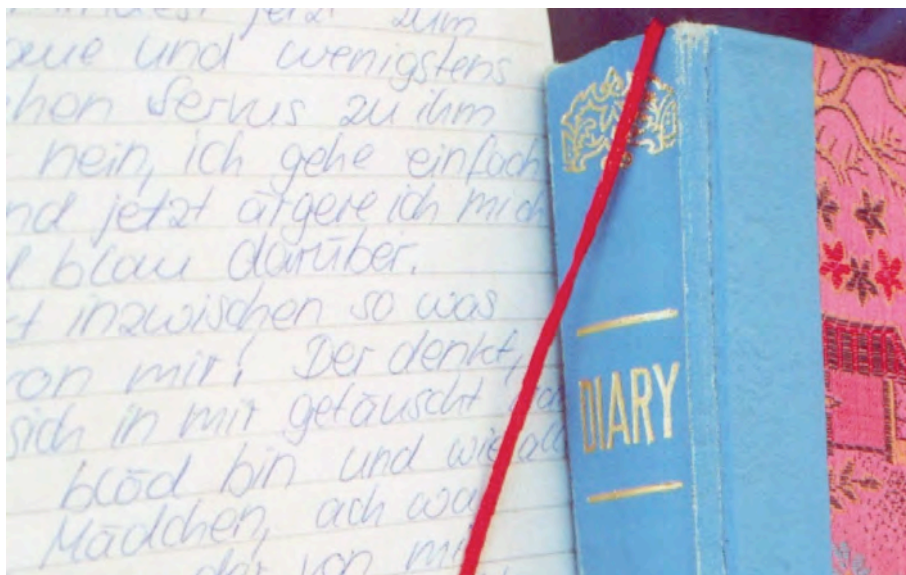 jetzt zum
und wenigstens
Servus zu ihm
nein, ich gehe einfach
jetzt ärgere ich mich
blau darüber.
inzwischen so was
von mir! Der denkt,
sich in mir getäuscht
blöd bin und wie
Mädchen, ach
der von
DIARY